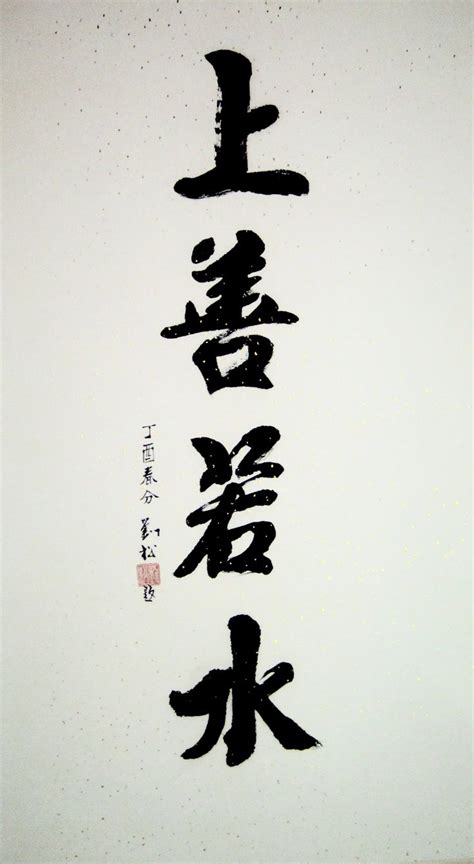 上善若水
丁酉春分 劉松 題